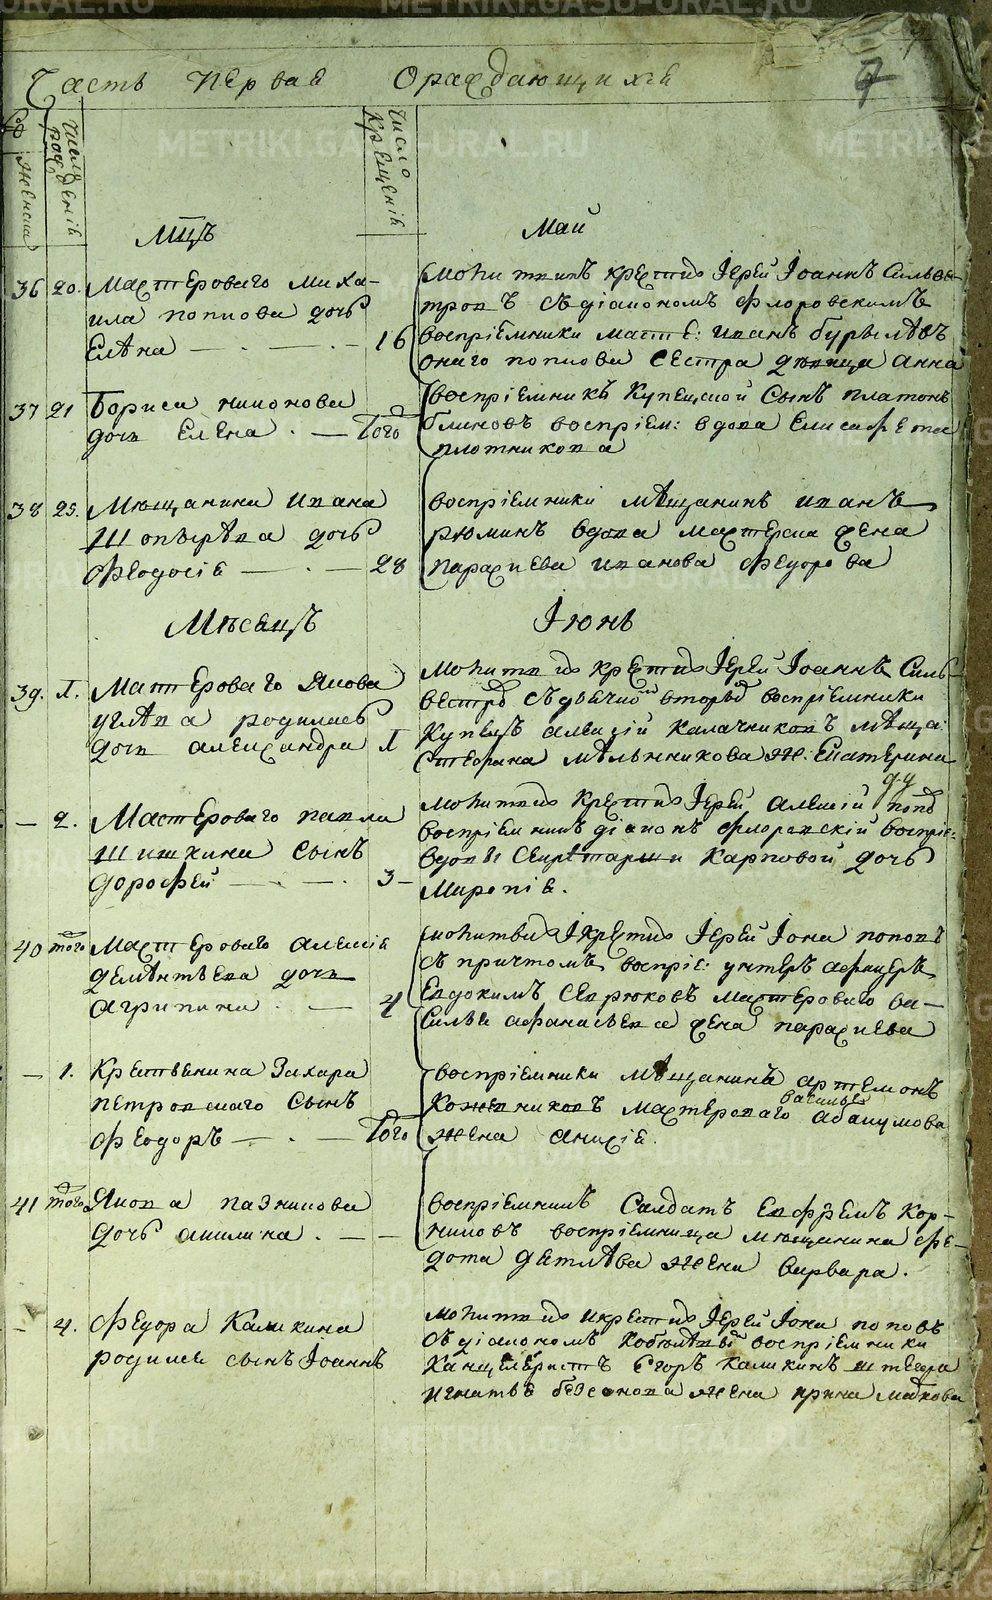 Часть первая ораждающихся
7
женска
Число рожденiя
Число крещенiя
Мцъ
Май
36 20. Мастероваго Миха-
ила попкова дочь
Елена 16
Молитвилъ крестилъ Iерей Iоаннъ Сильве-
стровъ съ дiакономъ флоровскимъ
воспрiемники масте: иванъ бурылевъ
онаго попкова сестра девица Анна
37 21 Бориса
дочь Елена Того
воспрiемникъ купецкой сынъ платонъ
блиновъ воспрiем: вдова Елисафета
плотникова
38 25. Мещанина ивана
дочь
феодосiя 28
воспрiемники мещанинъ иванъ
рюминъ вдова мастерска жена
параскева иванова федорова
Месяцъ
Iюнь
39. 1. Мастероваго якова
углева родилась
дочь александра 1
Молитвилъ крестилъ Iерей Iоаннъ Силь-
воспрiемники
купецъ алексiй калачниковъ меща:
стефана мельникова ж: Екатерина
2. Мастероваго павла
шишкина сынъ
дорофей 3
Молитвилъ крестилъ Iерей алексiй попо
воспрiемникъ дiаконъ флоровскiй воспрiе:
вдовы секретарши карповой дочь
Миропiя.
40 того Мастероваго алексiя
дементьева дочь
агрипина 4
молитвилъ Iкрестилъ Iерей Iона поповъ
съ причтомъ воспрiе: унтеръ афицеръ
Евдокимъ севрюковъ мастероваго ва-
силья афанасьева жена параскева
1. Крестьянина Захара
петровскаго сынъ
феодоръ Того
воспрiемники мещанинъ артемонъ
кожевниковъ мастероваго василья абакумова
жена анисiя.
41 того якова пазникова
дочь акилина.
воспрiемникъ Салдатъ Ефремъ Кор-
ниловъ воспрiемница мещанина фе-
дота жена варвара.
4. федора Калкина
родился сынъ Iоаннъ
молитвилъ икрестилъ Iерей Iона поповъ
съ дiакономъ воспрiемники
канцеляристъ Егоръ калкинъ
игнатья безсонова жена ирина